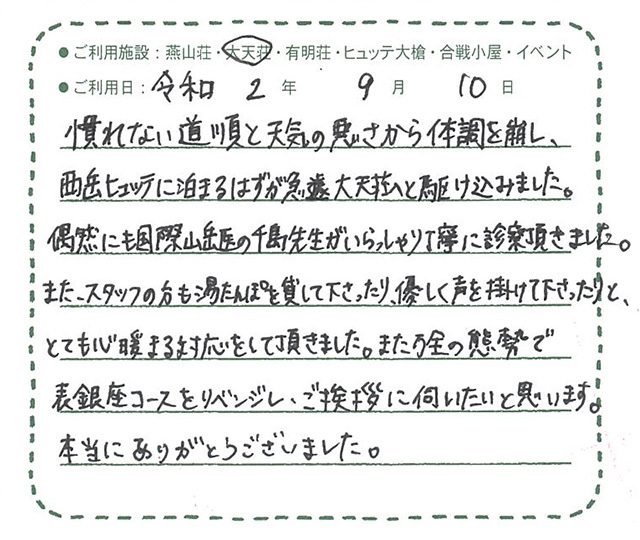 ●ご利用施設：燕山荘・大天荘・有明荘・ヒュッテ大槍・合戦小屋・イベント
●ご利用日：令和 2 年 9 月 10 日
慣れない道順と天気の悪さから体調を崩し、
西岳ヒュッテに泊まるはずが急遽大天荘へと駆け込みました。
偶然にも国際山岳医の千島先生がいらっしゃり丁寧に診察頂きました。
また、スタッフの方も湯たんぽを貸して下さったり、優しく声を掛けて下さったりと、
とても心暖まる対応をして頂きました。また万全の態勢で
表銀座コースをリベンジし、ご挨拶に伺いたいと思います。
本当にありがとうございました。